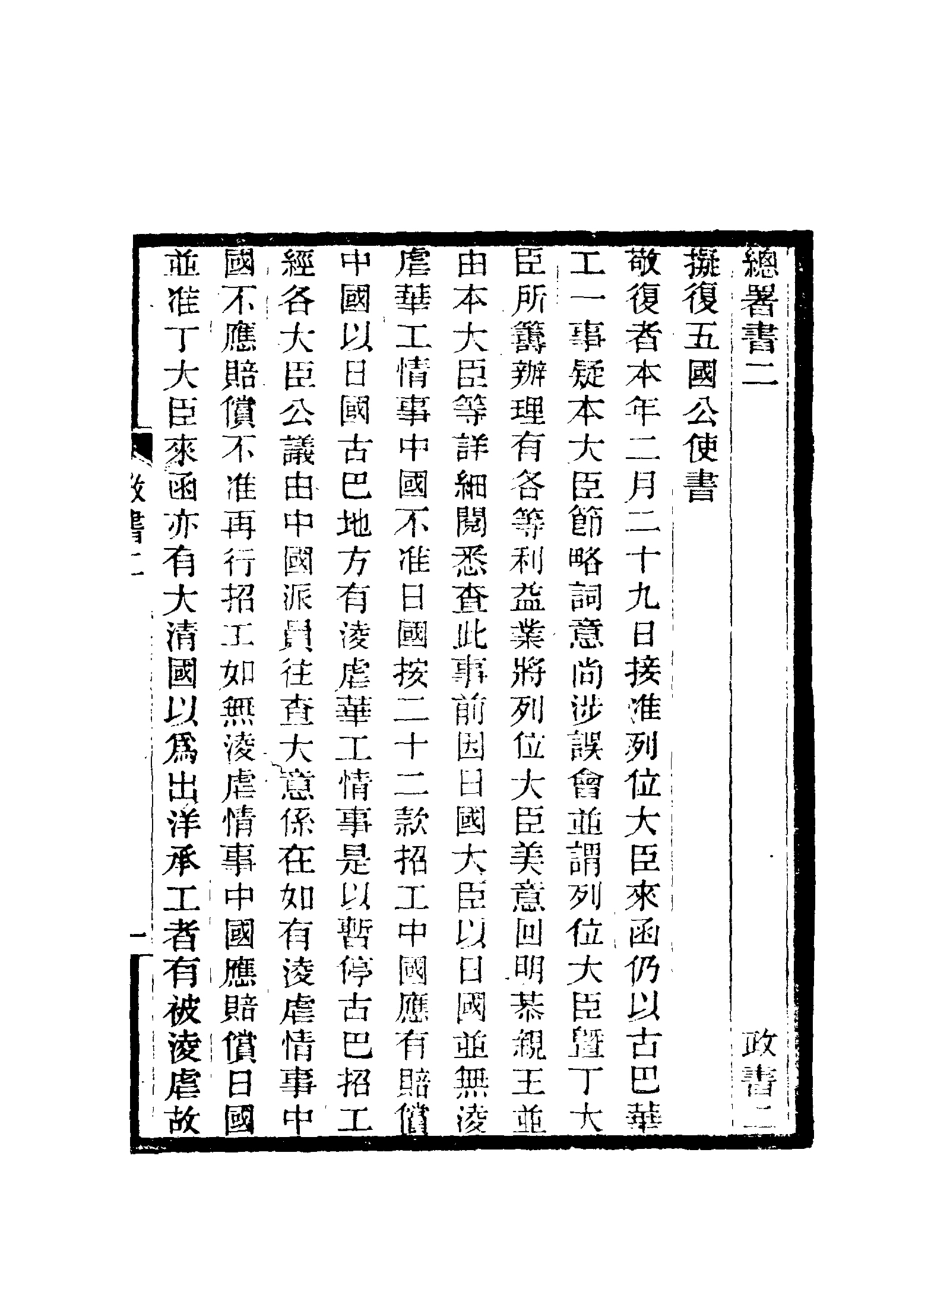 總署書二　政書二
擬復五國公使書
敬復者本年二月二十九日接准列位大臣來函仍以古巴華
工一事疑本大臣節略詞意尚涉誤會並謂列位大臣曁丁大
臣所籌辦理有各等利益業將列位大臣美意回明恭親王並
由本大臣等詳細閱悉查此事前因日國大臣以日國並無淩
虐華工情事中國不准日國按二十二款招工中國應有賠償
中國以日國古巴地方有淩虐華工情事是以暫停古巴招工
經各大臣公議由中國派員往查大意係在如有淩虐情事中
國不應賠償不准再行招工如無淩虐情事中國應賠償日國
並准丁大臣來函亦有大清國以爲出洋承工者有被淩虐故
政書二
一